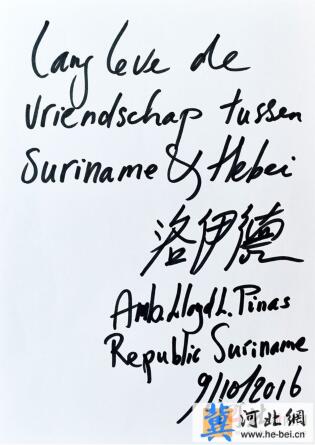 Lang leve de
vriendschap tussen
Suriname & Hebei
洛伊德
Amb. Lloyd L. Pinas
Republic Suriname
9/10/2016
冀 河北網
www.he-bei.cn